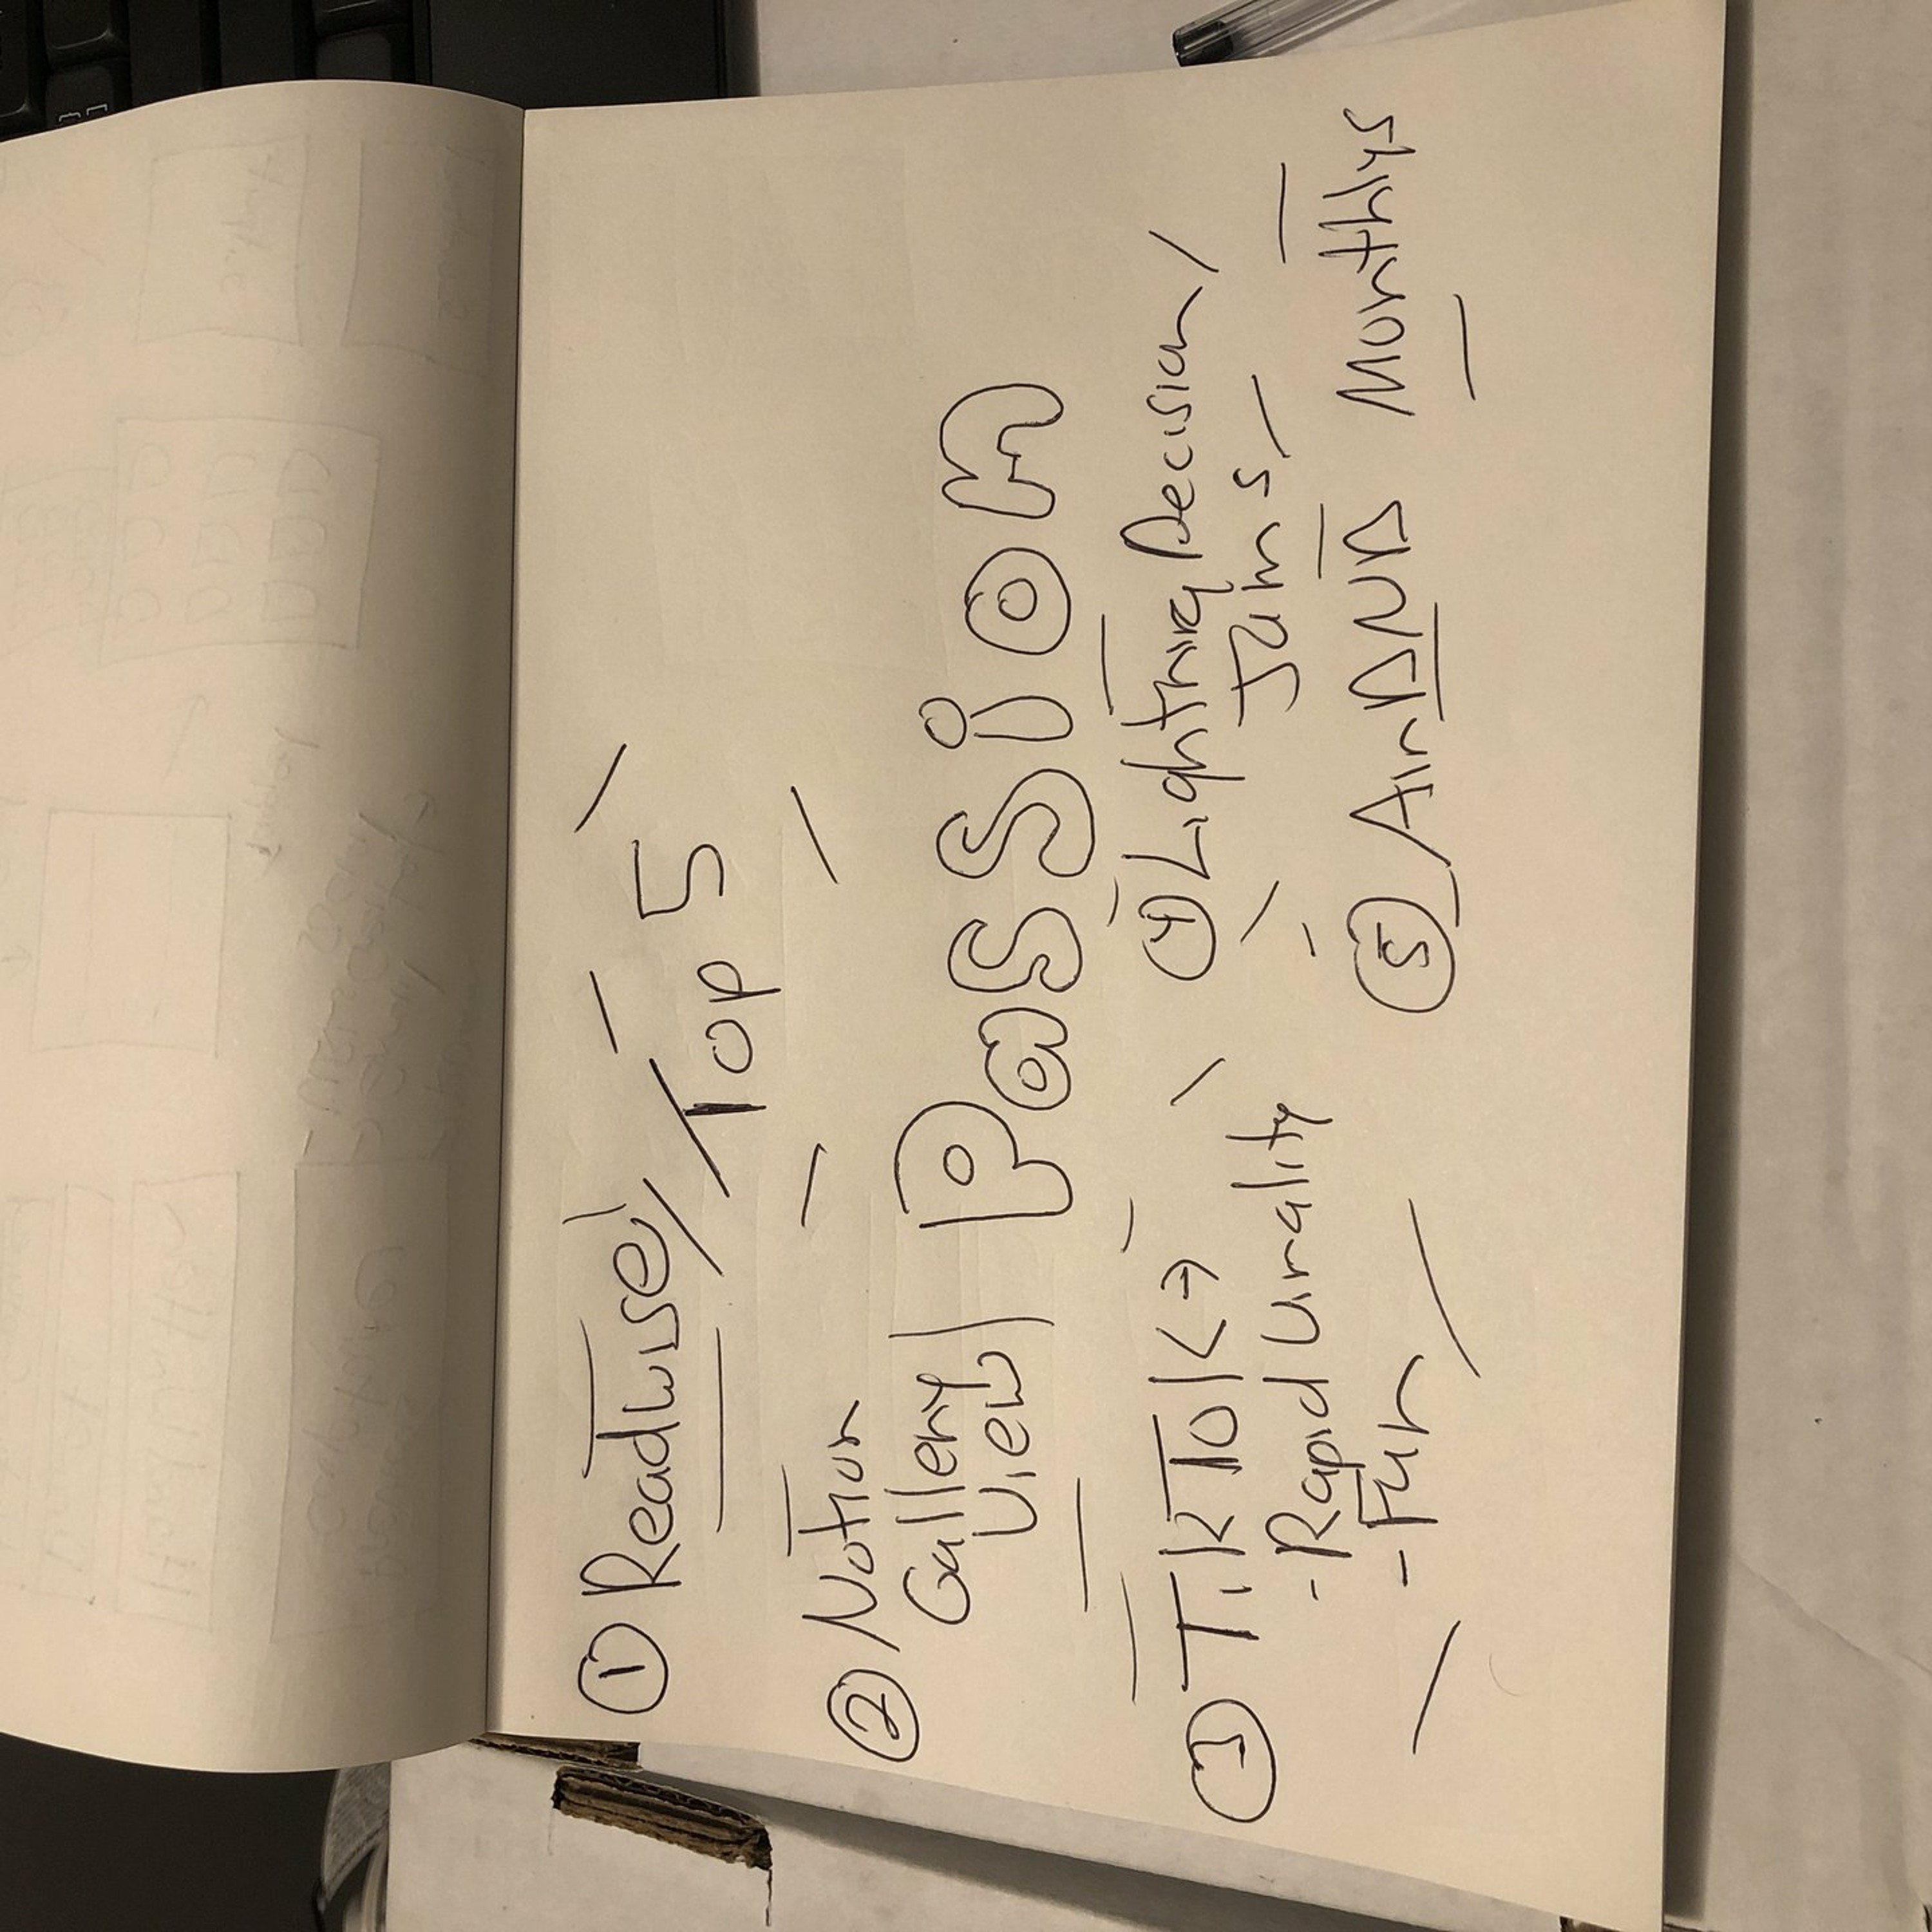 ① Readwise/
Top 5
② Notion
Gallery
View
Passion
③ TikTok →
- Rapid Virality
- Fun
④ Lightning Decision
Jams
⑤ AirBNB Monthlys